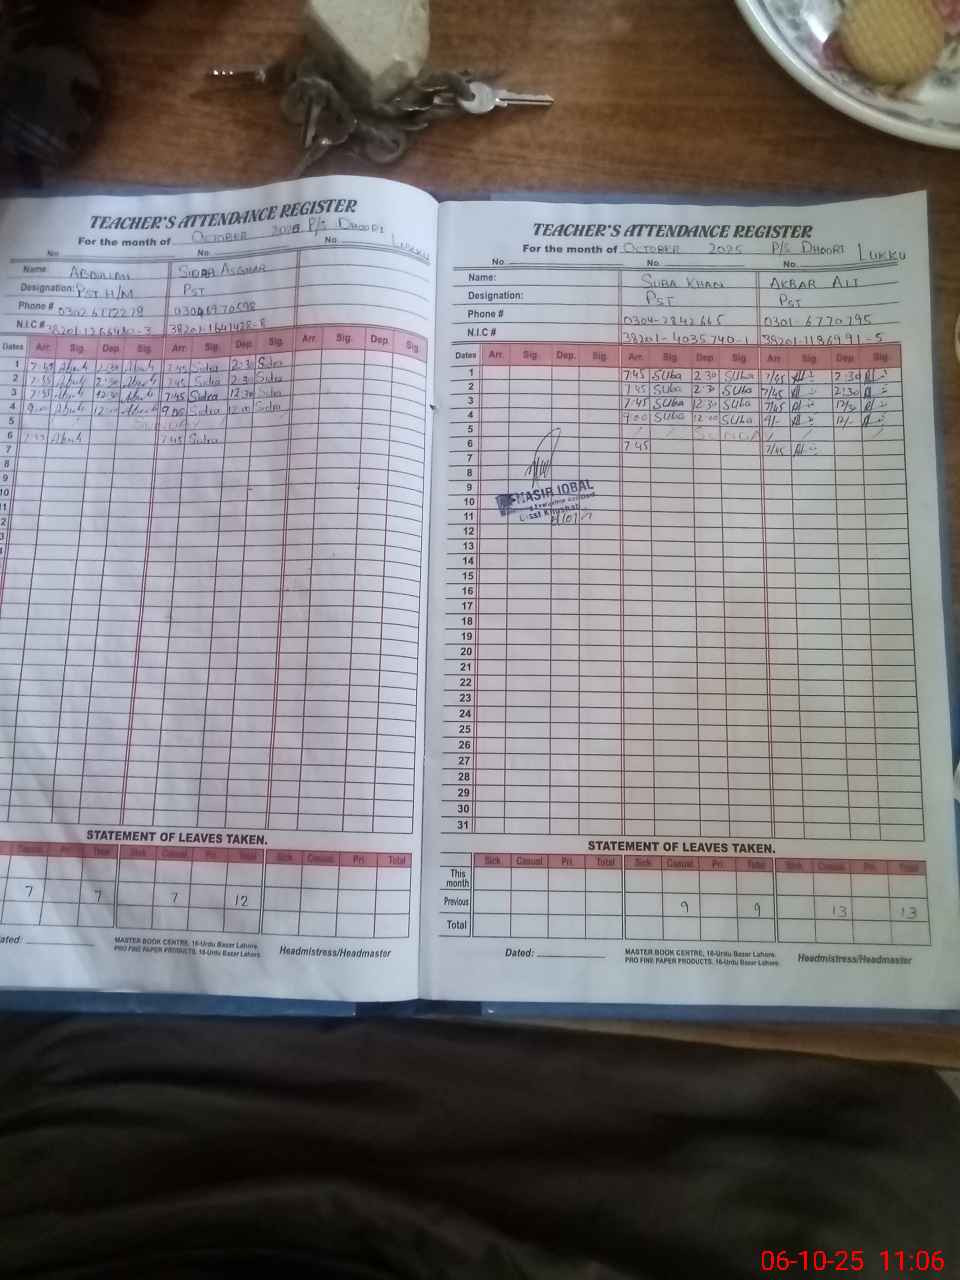 TEACHER'S ATTENDANCE REGISTER
For the month of October 2025 P/S Dhoori Lukku
No No. No
Name: Abdullah Sidra Asghar
Designation: PST H/M PST
Phone #
N.I.C #
Dates Arr. Sig. Dep. Sig. Arr. Sig. Dep. Sig. Arr. Sig. Dep. Sig.
1 7:45 2:30 7:45 Sidra 2:30 Sidra
2 2:30 7:45 Sidra 2:30 Sidra
3 12:30 7:45 Sidra 12:30 Sidra
4 9:00 12:00 9:00 Sidra 12:00 Sidra
5 SUNDAY
6 7:45 Sidra
7
8
9
10
11
STATEMENT OF LEAVES TAKEN.
Casual Pri. Total Sick Casual Pri. Total Sick Casual Pri. Total
7 7 7 12
Dated:
MASTER BOOK CENTRE, 16-Urdu Bazar Lahore.
PRO FINE PAPER PRODUCTS. 16-Urdu Bazar Lahore.
Headmistress/Headmaster
TEACHER'S ATTENDANCE REGISTER
For the month of October 2025 P/S Dhoori Lukku
No No. No.
Name: Suba Khan Akbar Ali
Designation: PST PST
Phone # 0304-2842665 0301-6770795
N.I.C # 38201-4035740-1 38201-1186991-5
Dates Arr. Sig. Dep. Sig. Arr. Sig. Dep. Sig. Arr. Sig. Dep. Sig.
1 7:45 Suba 2:30 Suba 7/45 2:30
2 7:45 Suba 2:30 Suba 7/45 2:30
3 7:45 Suba 12:30 Suba 7/45 12/30
4 9:00 Suba 12:00 Suba 9/- 12/-
5 SUNDAY
6 7:45 7/45
7
8
9
NASIR IQBAL
10
11
12
13
14
15
16
17
18
19
20
21
22
23
24
25
26
27
28
29
30
31
STATEMENT OF LEAVES TAKEN.
Sick Casual Pri. Total Sick Casual Pri. Total Sick Casual Pri. Total
This month
Previous 9 9 13 13
Total
Dated:
MASTER BOOK CENTRE, 16-Urdu Bazar Lahore.
PRO FINE PAPER PRODUCTS. 16-Urdu Bazar Lahore.
Headmistress/Headmaster
06-10-25 11:06